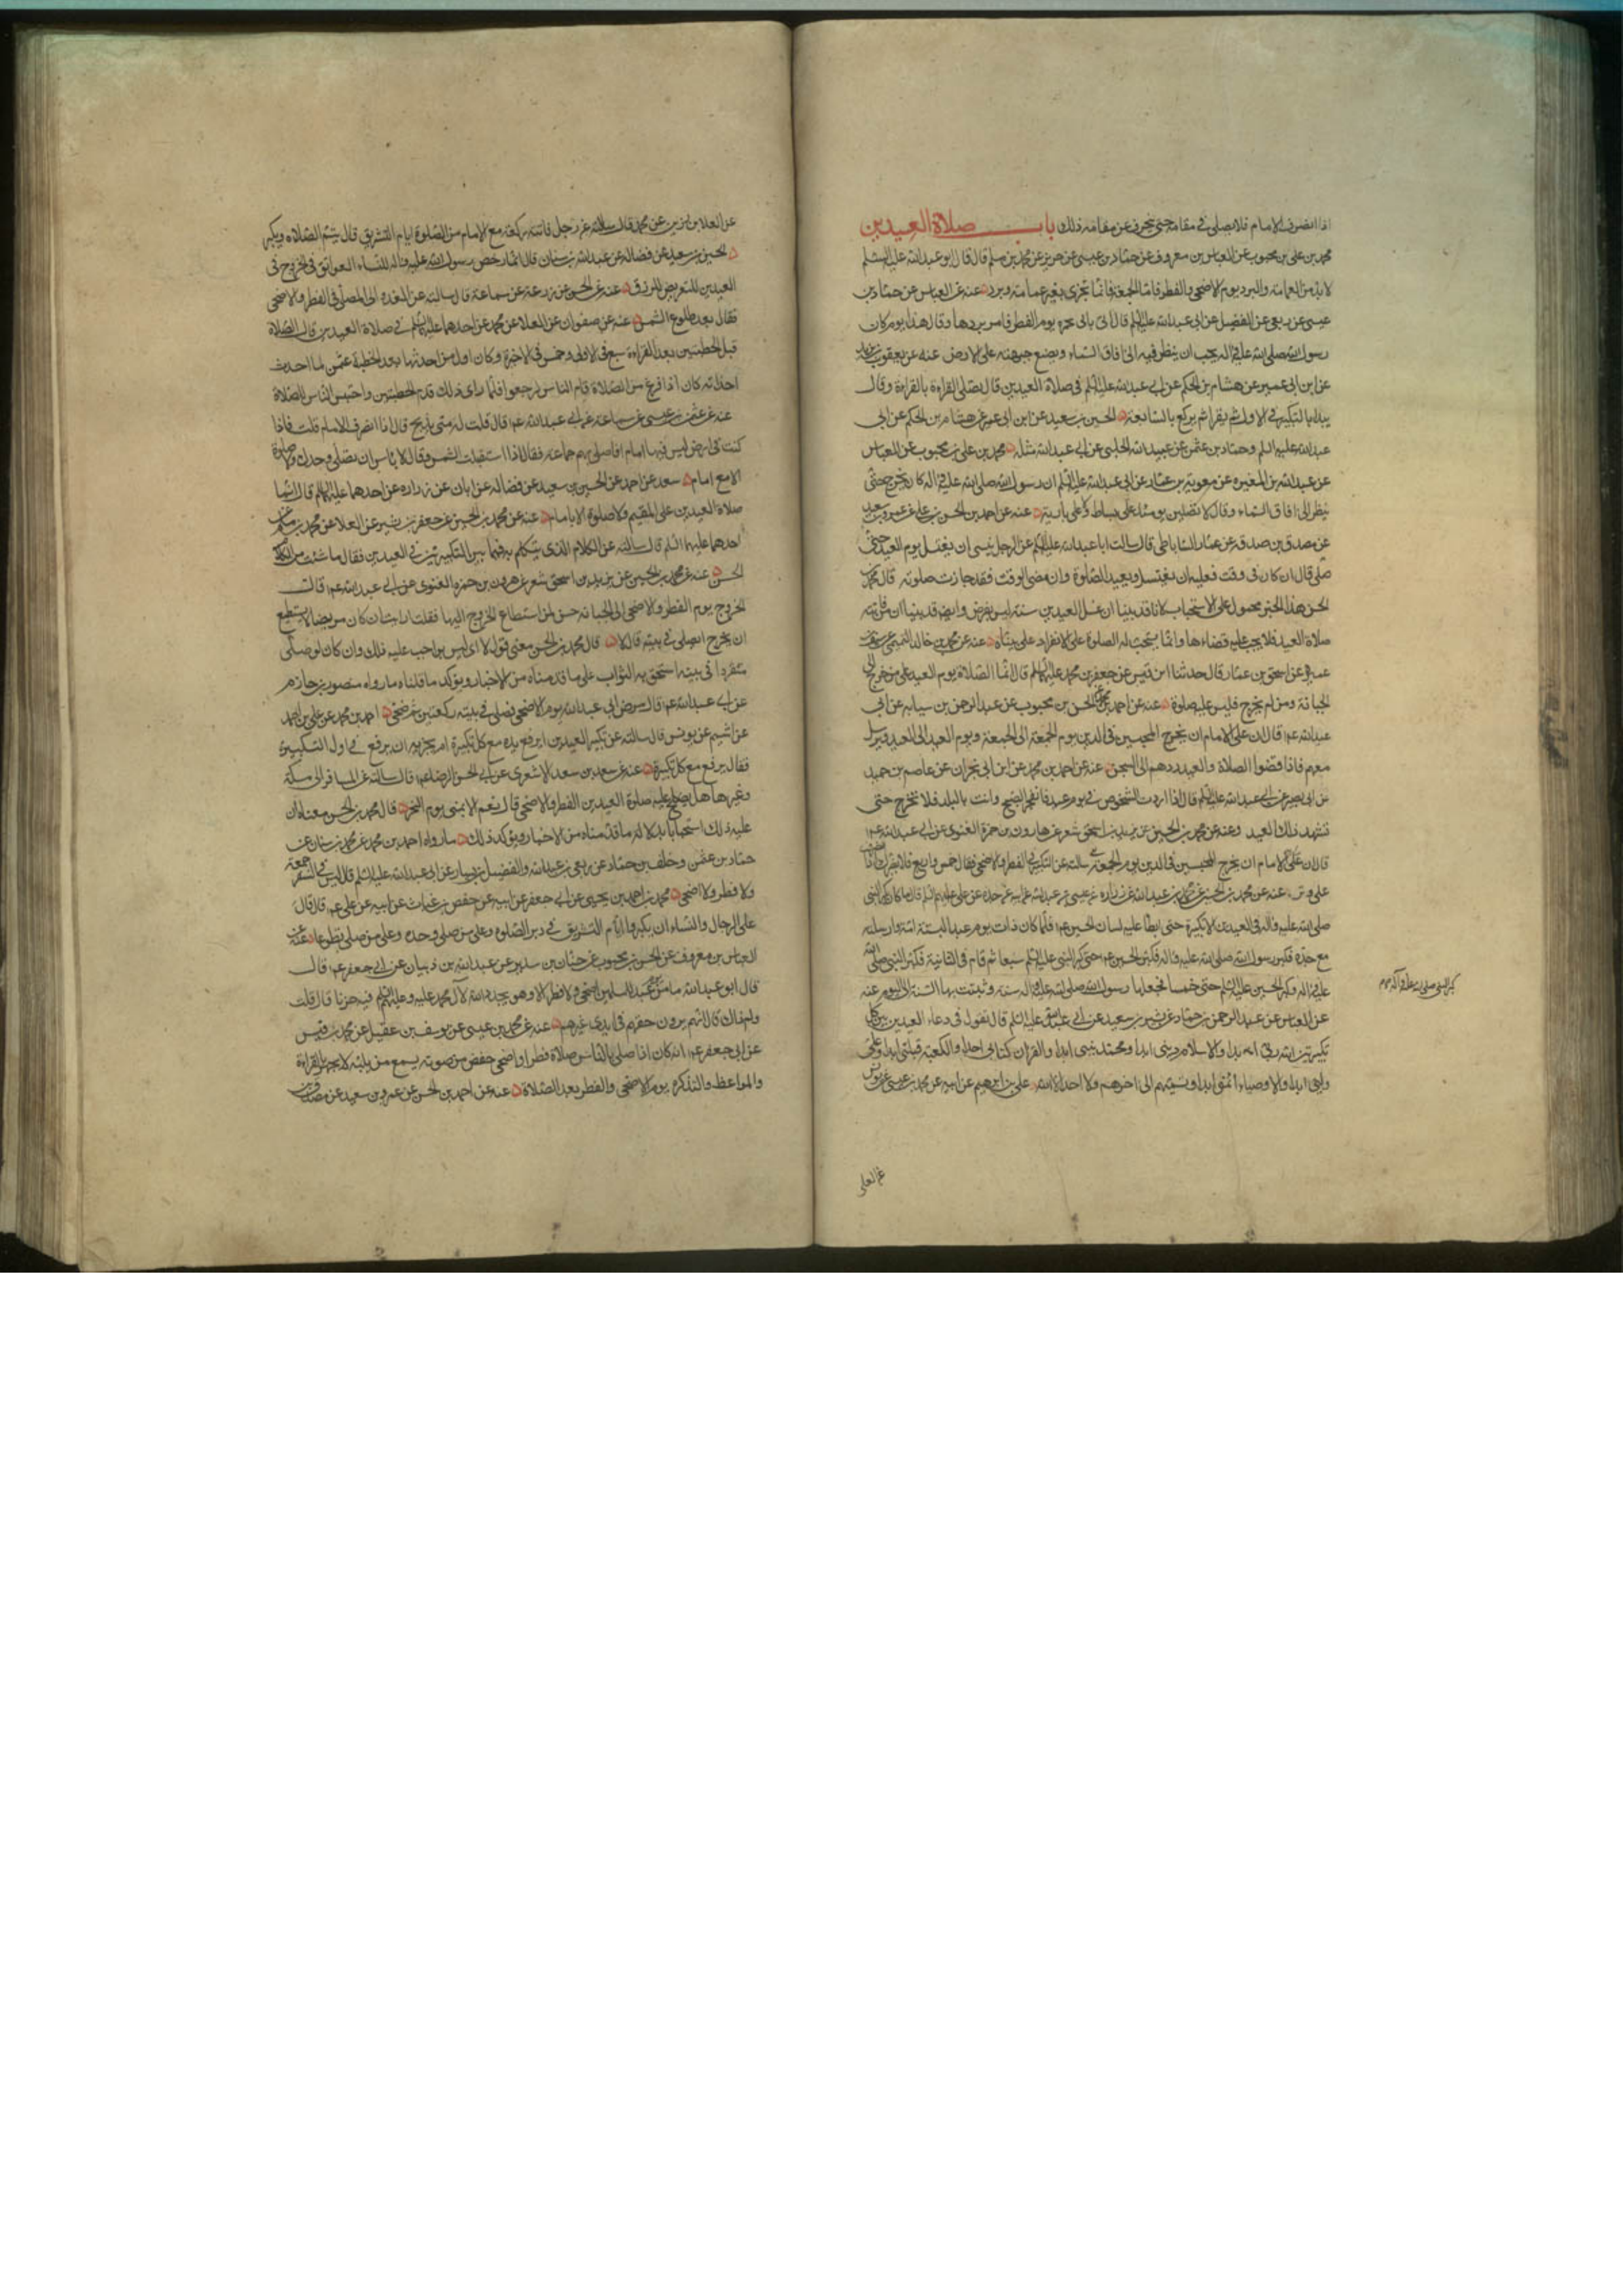 اذا انصرف الامام فلا يصلى فى مقامه حتى ينحرف عن مقامه ذلك باب صلاة العيدين
محمد بن على بن محبوب عن العباس بن معروف عن حماد بن عيسى عن حريز عن محمد بن مسلم قال قال ابو عبد الله عليه السلم
لابد من العمامة والبرد يوم الاضحى والفطر فاما الجمعة فانما تجزى بغير عمامة وبرد عنه عن العباس عن حماد بن
عيسى عن ربعى عن الفضيل عن ابى عبد الله عليه السلم قال اتى ابى بالخمرة يوم الفطر فامر بردها وقال هذا يوم كان
رسول الله صلى الله عليه واله يحب ان ينظر فيه الى افاق السماء ويضع جبهته على الارض عنه عن يعقوب بن يزيد
عن ابن ابى عمير عن هشام بن الحكم عن ابى عبد الله عليه السلم فى صلاة العيدين قال يصلى القراءة بالقراءة وقال
يبدا بالتكبير فى الاولى ثم يقرا ثم يركع بالسابعة الحسين بن سعيد عن ابن ابى عمير عن هشام بن الحكم عن ابى
عبد الله عليه السلم وحماد بن عثمن عن عبيد الله الحلبى عن ابى عبد الله مثله محمد بن على بن محبوب عن العباس
عن عبد الله بن المغيره عن معوية بن عمار عن ابى عبد الله عليه السلم ان رسول الله صلى الله عليه واله كان يخرج حتى
ينظر الى افاق السماء وقال لا تصلين يومئذ على بساط ولا على بارية عنه عن احمد بن الحسن بن على عن عمرو بن سعيد
عن مصدق بن صدقه عن عمار الساباطى قال سالت ابا عبد الله عليه السلم عن الرجل ينسى ان يغتسل يوم العيد حتى
صلى قال ان كان فى وقت فعليه ان يغتسل ويعيد الصلوة وان مضى الوقت فقد جازت صلوته قال محمد بن
الحسن هذا الخبر محمول على الاستحباب لانا قد بينا ان غسل العيدين سنة ليس بفرض وايضا قد بينا ان من فاتته
صلاة العيد فلا يجب عليه قضاءها وانما يستحب له الصلوة على الانفراد على بيناه عنه عن محمد بن خالد التميمى عن سيف بن
عميرة عن اسحق بن عمار قال حدثنا ابن قيس عن جعفر بن محمد عليه السلم قال انما الصلاة يوم العيد على من خرج الى
الجبانة ومن لم يخرج فليس عليه صلوة عنه عن احمد بن محمد عن الحسن بن محبوب عن عبد الرحمن بن سيابه عن ابى
عبد الله عم قال ان على الامام ان يخرج المحبسين فى الدين يوم الجمعة الى الجمعة ويوم العيد الى العيد فيرسل
معهم فاذا قضوا الصلاة والعيد ردهم الى السجن عنه عن احمد بن محمد عن ابن ابى نجران عن عاصم بن حميد
عن ابى بصير عن ابى عبد الله عليه السلم قال اذا اردت الشخوص فى يوم عيد فانفجر الصبح وانت بالبلد فلا تخرج حتى
تشهد ذلك العيد وعنه عن محمد بن الحسين عن يزيد بن اسحق شعر عن هارون بن حمزة الغنوى عن ابى عبد الله عم
قال ان على الامام ان يخرج المحبسين فى الدين يوم الجمعة سالته عن التكبير فى الفطر والاضحى فقال خمس واربع فلا يضرك اذا انصرفت
على وتر عنه عن محمد بن الحسين عن محمد بن عبد الله عن زراره عن عيسى بن عبد الله عن ابيه عن جده عن على عليهم السلم قال ما كان يكبر النبى
صلى الله عليه واله فى العيدين الا تكبيرة حتى ابطا عليه لسان الحسين عم فلما كان ذات يوم عيد البسته امه وارسلته
مع جده فكبر رسول الله صلى الله عليه واله فكبر الحسين عم حتى كبر النبى عليه السلم سبعا ثم قام فى الثانية فكبر النبى صلى الله
عليه واله وكبر الحسين عليه السلم حتى خمسا فجعلها رسول الله صلى الله عليه واله سنة وثبتت بها السنة الى اليوم عنه
عن العباس عن عبد الرحمن بن حماد عن بشير بن سعيد عن ابى عبد الله عليه السلم قال تقول فى دعاء العيدين بين كل
تكبيرتين الله ربى ابدا والاسلام دينى ابدا ومحمد نبيى ابدا والقران كتابى ابدا والكعبة قبلتى ابدا وعلى
وليى ابدا والاوصياء ائمتى ابدا وتسميهم الى اخرهم ولا احد الا الله على بن ابرهيم عن ابيه عن محمد بن عيسى عن يونس
كبر النبى صلى الله عليه وآله
عن العلا
عن العلا بن رزين عن محمد قال سالته عن رجل فاتته ركعة مع الامام من الصلوة ايام التشريق قال يتم الصلاه ويكبر
الحسين بن سعيد عن فضاله عن عبد الله بن سنان قال انما رخص رسول الله عليه واله للنساء العواتق فى الخروج فى
العيدين للتعرض للرزق عنه عن الحسن عن زرعة عن سماعة قال سالته عن الغدو الى المصلى فى الفطر والاضحى
فقال بعد طلوع الشمس عنه عن صفوان عن العلا عن محمد عن احدهما عليه السلم فى صلاة العيدين قال الصلاة
قبل الخطبتين بعد القراءة سبع فى الاولى وخمس فى الاخرة وكان اول من احدثها بعد الخطبة عثمن لما احدث
احداثه كان اذا فرغ من الصلاة قام الناس ليرجعوا فلما راى ذلك قدم الخطبتين واحتبس الناس للصلاة
عنه عن عثمن بن عيسى عن سماعة عن ابى عبد الله عم قال قلت له متى يذبح قال اذا انصرف الامام قلت فاذا
كنت فى ارض ليس فيها امام افاصلى بهم جماعة فقال اذا استقبلت الشمس وقال لا باس ان تصلى وحدك ولا صلوة
الا مع امام سعد عن احمد عن الحسين بن سعيد عن فضاله عن ابان عن زراره عن احدهما عليه السلم قال انما
صلاة العيدين على المقيم ولا صلوة الا بامام عنه عن محمد بن الحسين عن جعفر بن بشير عن العلا عن محمد بن مسلم عن
احدهما عليهما السلم قال سالته عن الكلام الذى يتكلم به فيما بين التكبيرتين فى العيدين فقال ما شئت من الكلام
الحسن عنه عن محمد بن الحسين عن يزيد بن اسحق شعر عن هرون بن حمزه الغنوى عن ابى عبد الله عم قال
الخروج يوم الفطر والاضحى الى الجبانة حسن لمن استطاع الخروج اليها فقلت ارايت ان كان مريضا لا يستطيع
ان يخرج ايصلى فى بيته قال لا قال محمد بن الحسن معنى قوله لا اى ليس بواجب عليه ذلك وان كان لو صلى
منفردا فى بيته استحق به الثواب على ما قدمناه من الاخبار ويؤكد ما قلناه ما رواه منصور بن حازم
عن ابى عبد الله عم قال مرض ابى عبد الله يوم الاضحى فصلى فى بيته ركعتين ثم ضحى احمد بن محمد عن على بن احمد
عن اشيم عن يونس قال سالته عن تكبير العيدين ايرفع يده مع كل تكبيرة ام يجزيه ان يرفع فى اول التكبيرة
فقال يرفع مع كل تكبيرة عنه عن سعد بن سعد الاشعرى عن ابى الحسن الرضا عم قال سالته عن المسافر الى مكة
وغيرها هل يصلح عليه صلوة العيدين الفطر والاضحى قال نعم الا بمنى يوم النحر قال محمد بن الحسن معناه ان
عليه ذلك استحبابا بدلالة ما قدمناه من الاخبار ويؤكد ذلك ما رواه احمد بن محمد عن محمد بن سنان عن
حماد بن عثمن وخلف بن حماد عن ربعى بن عبد الله والفضيل بن يسار عن ابى عبد الله عليه السلم قال ليس فى السفر جمعة
ولا فطر ولا اضحى محمد بن احمد بن يحيى عن ابى جعفر عن ابيه عن حفص بن غياث عن ابيه عن على عم قال قال
على الرجال والنساء ان يكبروا ايام التشريق فى دبر الصلوه وعلى من صلى وحده وعلى من صلى تطوعا عنه عن
العباس بن معروف عن الحسن بن محبوب عن حنان بن سدير عن عبد الله بن ذبيان عن ابى جعفر عم قال
قال ابو عبد الله ما من عيد للمسلمين اضحى ولا فطر الا وهو يجدد الله لآل محمد عليه وعليهم السلم فيه حزنا قال قلت
ولم ذاك قال انهم يرون حقهم فى ايدى غيرهم عنه عن محمد بن عيسى عن يوسف بن عقيل عن محمد بن قيس
عن ابى جعفر عم انه كان اذا صلى بالناس صلاة فطر او اضحى خفض من صوته يسمع من يليه لا يجهر بالقراءة
والمواعظ والتذكره يوم الاضحى والفطر بعد الصلاة عنه عن احمد بن الحسن عن عمرو بن سعيد عن مصدق بن